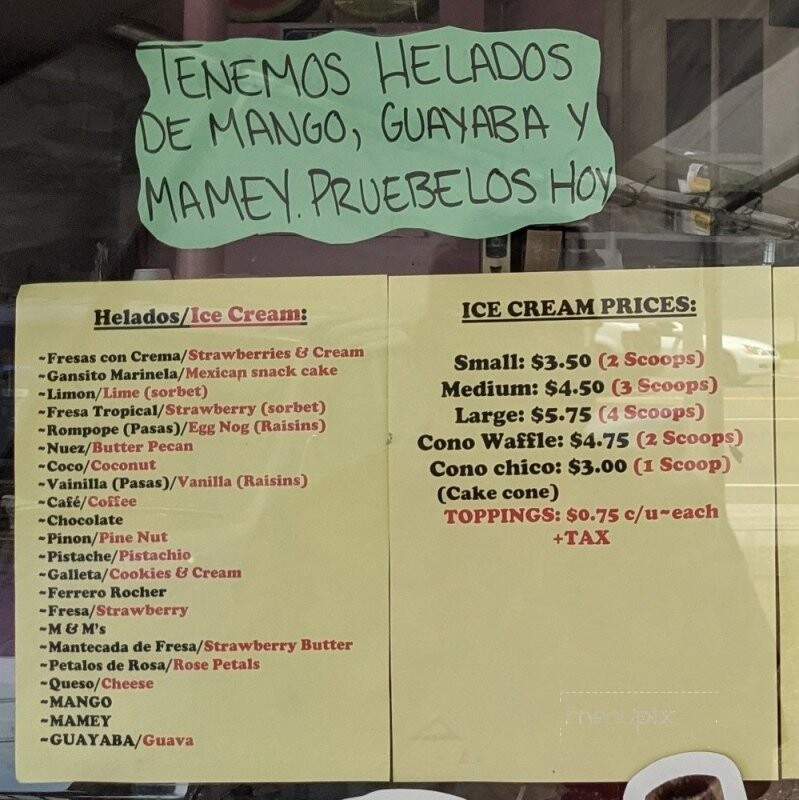 TENEMOS HELADOS
DE MANGO, GUAYABA Y
MAMEY. PRUEBELOS HOY
Helados/Ice Cream:
~Fresas con Crema/Strawberries & Cream
~Gansito Marinela/Mexican snack cake
~Limon/Lime (sorbet)
~Fresa Tropical/Strawberry (sorbet)
~Rompope (Pasas)/Egg Nog (Raisins)
~Nuez/Butter Pecan
~Coco/Coconut
~Vainilla (Pasas)/Vanilla (Raisins)
~Café/Coffee
~Chocolate
~Pinon/Pine Nut
~Pistache/Pistachio
~Galleta/Cookies & Cream
~Ferrero Rocher
~Fresa/Strawberry
~M & M's
~Mantecada de Fresa/Strawberry Butter
~Petalos de Rosa/Rose Petals
~Queso/Cheese
~MANGO
~MAMEY
~GUAYABA/Guava
ICE CREAM PRICES:
Small: $3.50 (2 Scoops)
Medium: $4.50 (3 Scoops)
Large: $5.75 (4 Scoops)
Cono Waffle: $4.75 (2 Scoops)
Cono chico: $3.00 (1 Scoop)
(Cake cone)
TOPPINGS: $0.75 c/u~each
+TAX
menupix